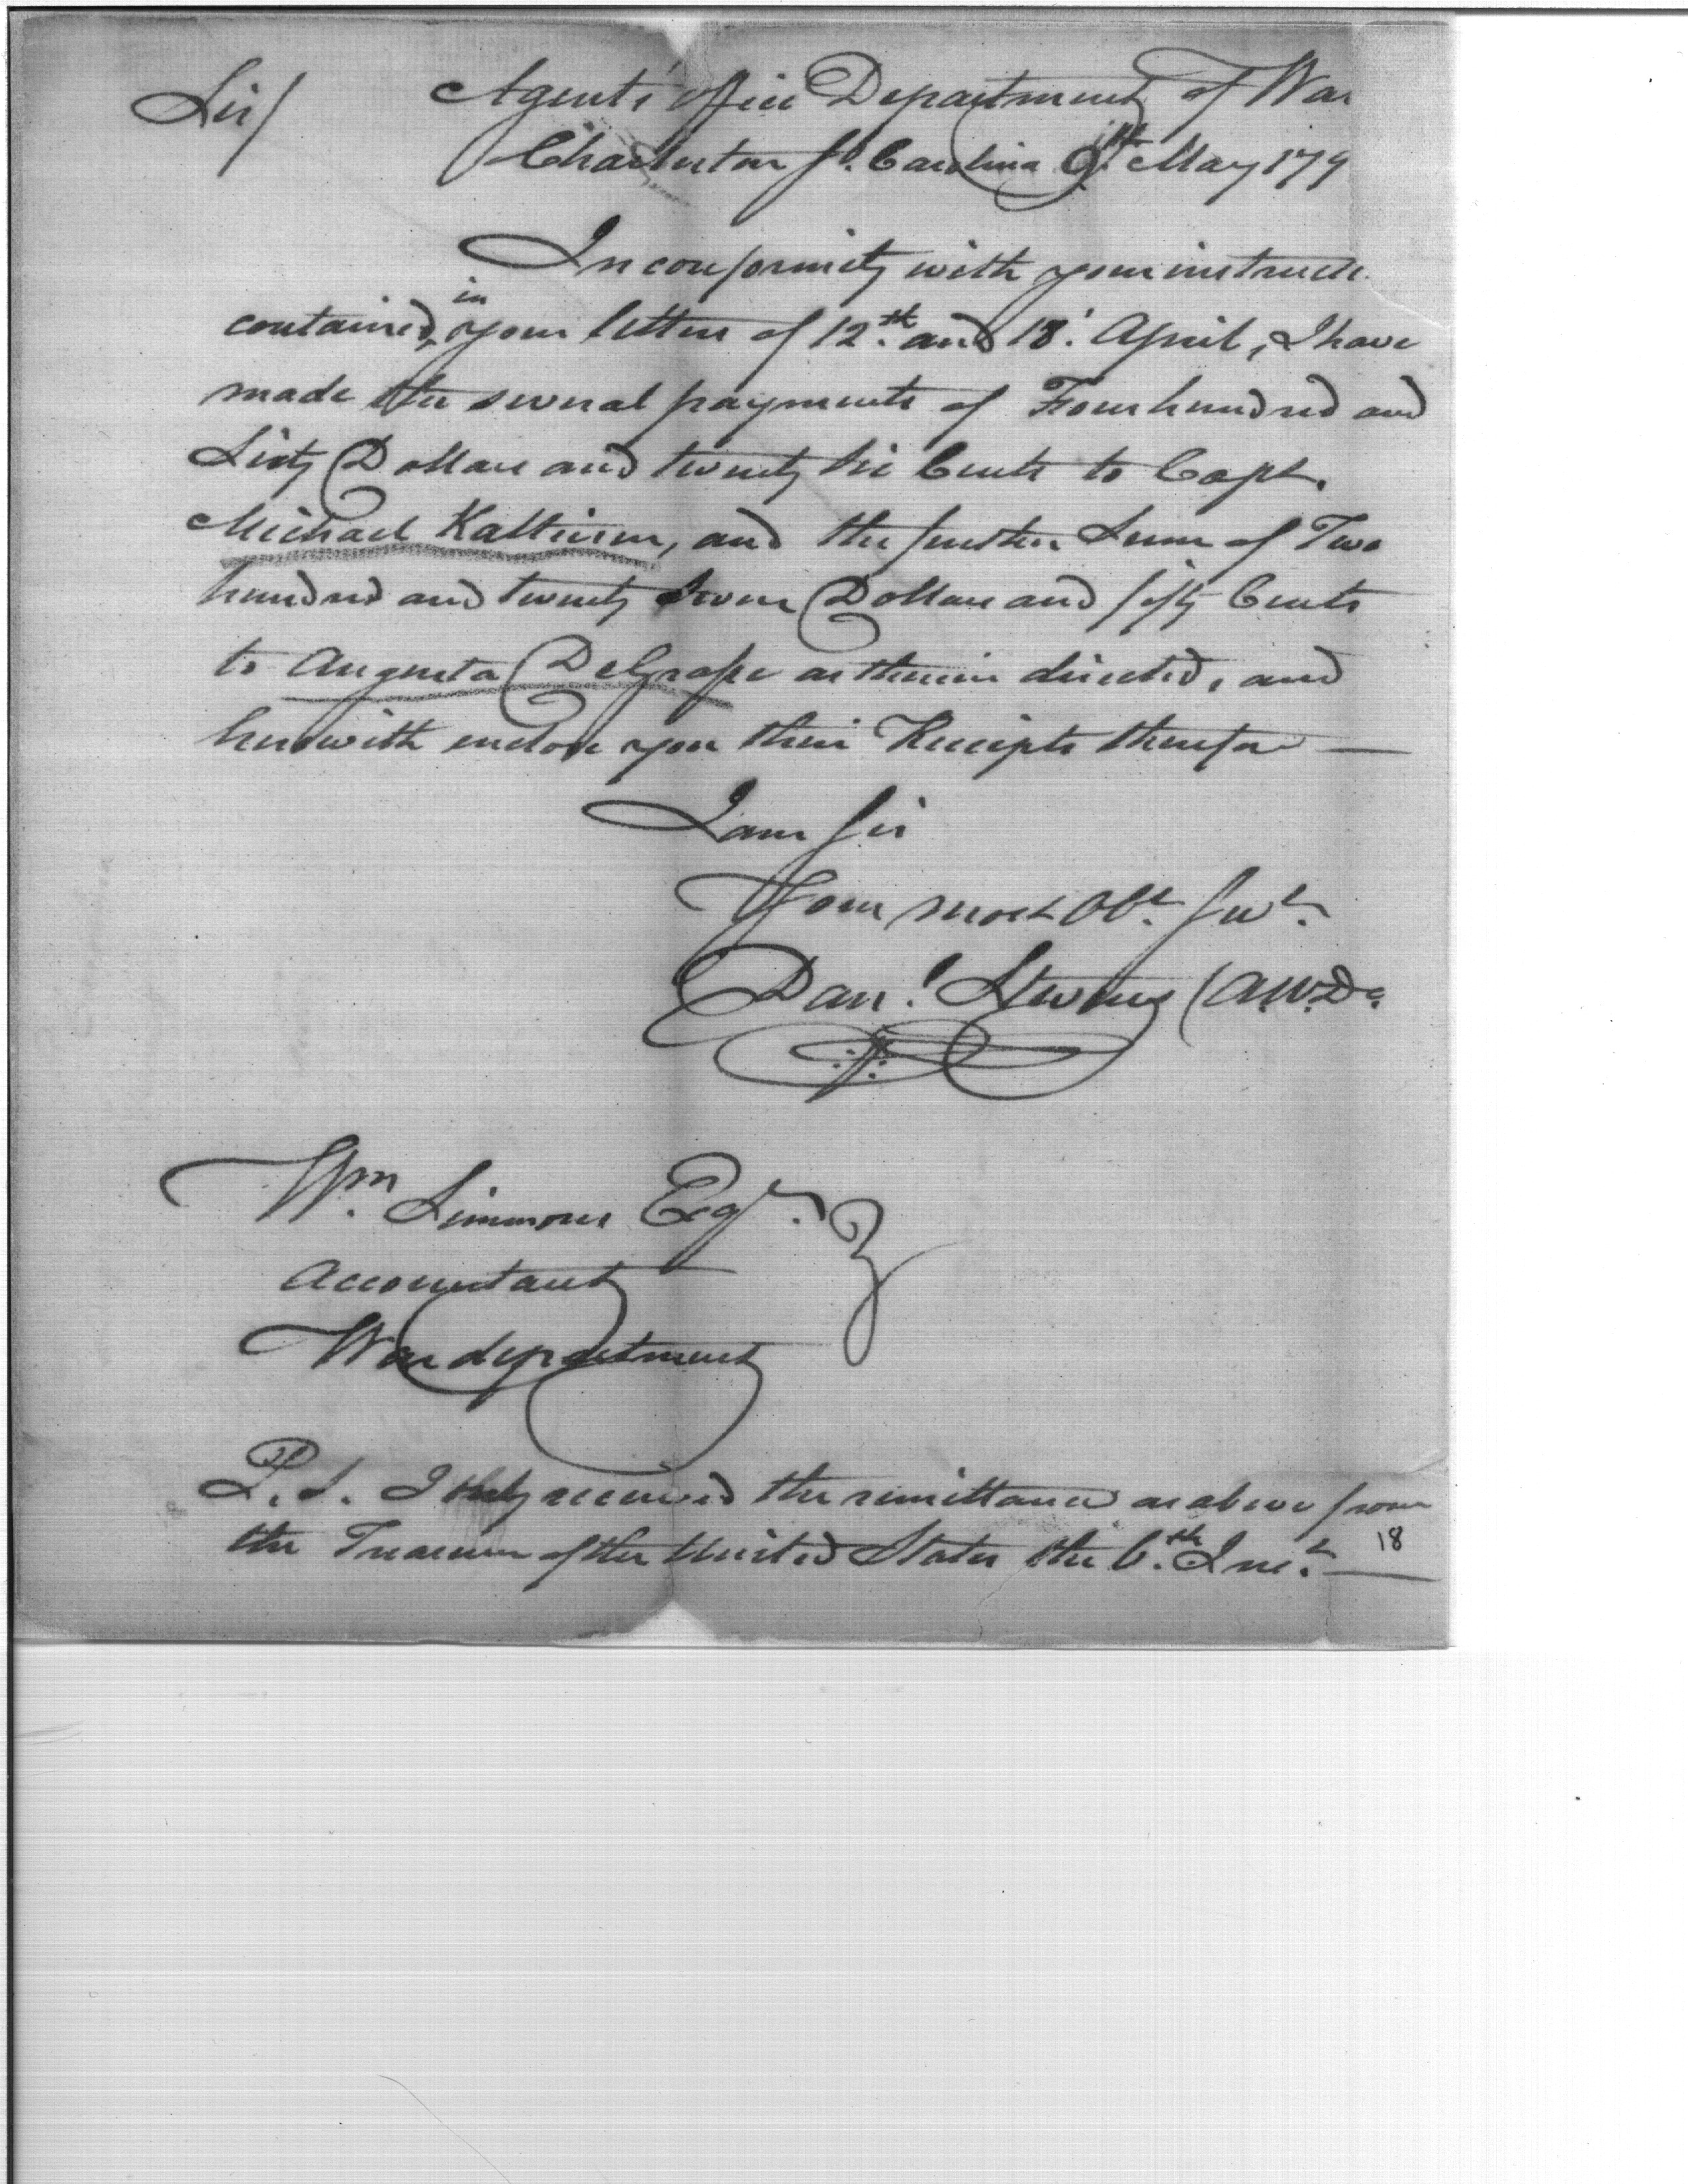 Sir/ Agent's Office Department of War
Charleston So. Carolina 9th May 179
In conformity with your instructi
contained in your letters of 12th and 18' April, I have
made the several payments of Four hundred and
Sixty Dollars and twenty Six Cents to Capt.
Michael Kalteisen, and the further Sum of Two
hundred and twenty Seven Dollars and fifty Cents
to Augusta DeGrasse as therein directed, and
herewith enclose you their Receipts therefor —
I am Sir
Your most Obt. Sert.
Danl. Stevens (A.W.D.
Wm. Simmons Esqr.
Accountant
War department
P.S. I only received the remittance as above from
the Treasurer of the United States the 6th Inst. —
18